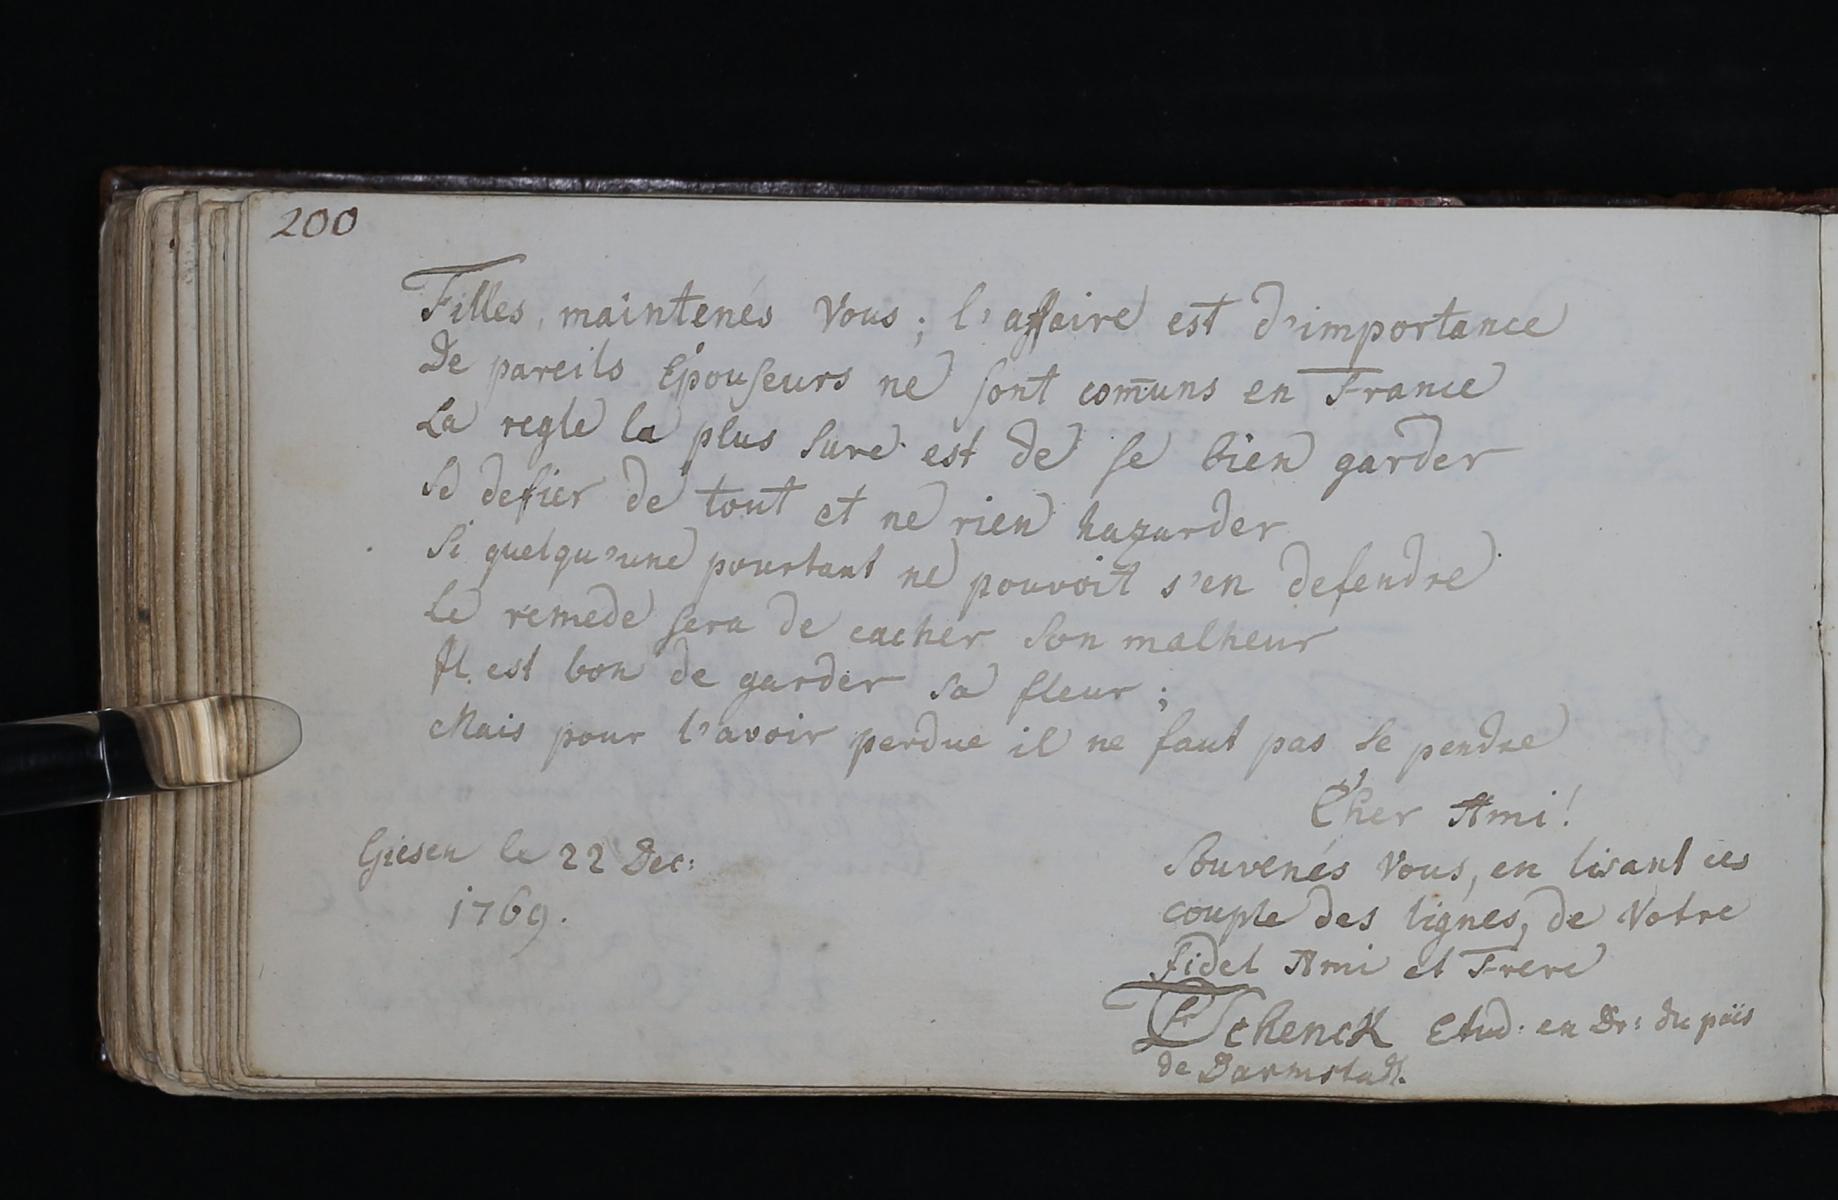 200
Filles, maintenés Vous; l'affaire est d'importance
De pareils Epouseurs ne sont com̄uns en France
La regle la plus sure est de se bien garder
Se defier de tout et ne rien hazarder
Si quelqu'une pourtant ne pouvoit s'en defendre
Le remede sera de cacher son malheur
Il est bon de garder sa fleur;
Mais pour l'avoir perdue il ne faut pas se pendre
Cher Ami!
Giesen le 22 Dec:
1769.
Souvenés Vous, en lisant ces
couple des lignes, de Votre
fidel Ami et Frere
Schenck Etud: en Dr: du païs
de Darmstadt.